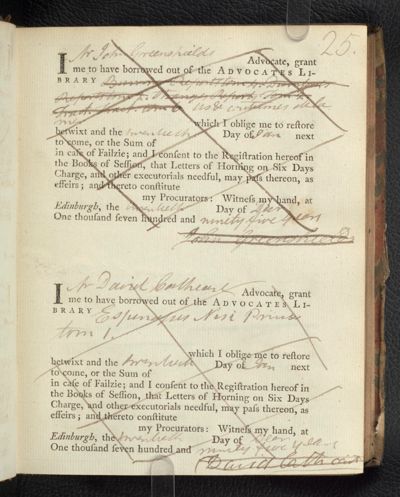 25.
I Mr John Greenshields Advocate, grant
me to have borrowed out of the ADVOCATES LI-
BRARY
us & coutumes de la
mer which I oblige me to restore
betwixt and the twentieth Day of Jan next
to come, or the Sum of
in case of Failzie; and I consent to the Registration hereof in
the Books of Session, that Letters of Horning on Six Days
Charge, and other executorials needful, may pass thereon, as
effeirs; and thereto constitute
my Procurators: Witness my hand, at
Edinburgh, the twentieth Day of
One thousand seven hundred and ninety five years
John Greenshields
I Mr David Cathcart Advocate, grant
me to have borrowed out of the ADVOCATES LI-
BRARY Espinasses Nisi Prius
tom 1.
which I oblige me to restore
betwixt and the twentieth Day of Jan next
to come, or the Sum of
in case of Failzie; and I consent to the Registration hereof in
the Books of Session, that Letters of Horning on Six Days
Charge, and other executorials needful, may pass thereon, as
effeirs; and thereto constitute
my Procurators: Witness my hand, at
Edinburgh, the twentieth Day of
One thousand seven hundred and ninety five years
David Cathcart